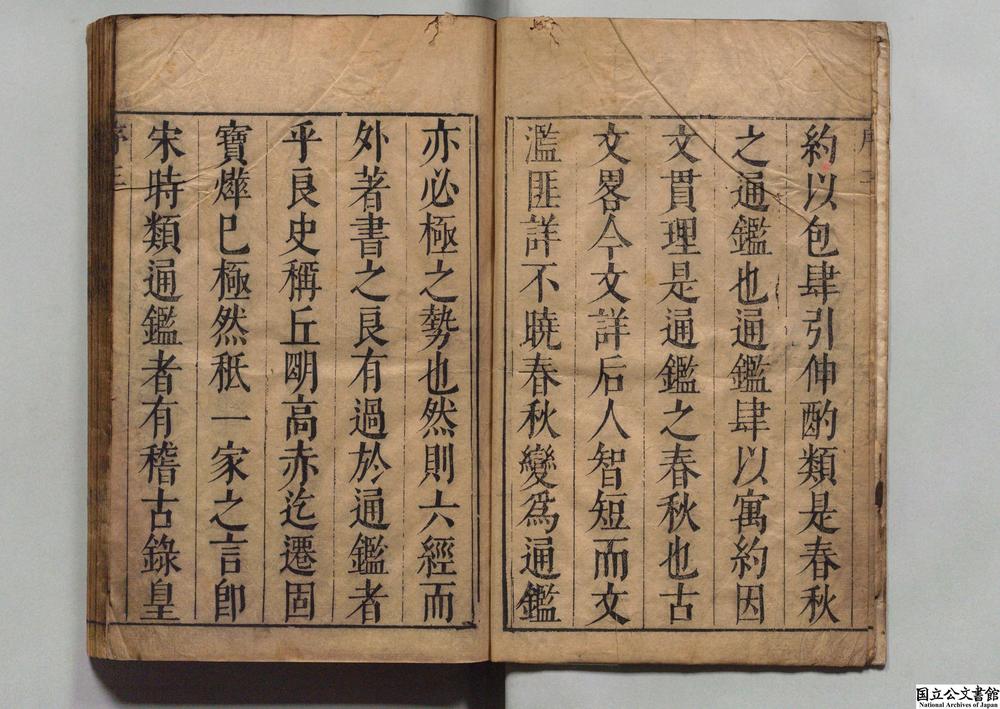 約以包肆引伸酌類是春秋
之通鑑也通鑑肆以寓約因
文貫理是通鑑之春秋也古
文畧今文詳后人智短而文
濫匪詳不曉春秋變爲通鑑
亦必極之勢也然則六經而
外著書之良有過於通鑑者
乎良史稱丘明高赤迄遷固
寶燁已極然秖一家之言卽
宋時類通鑑者有稽古錄皇
序三
国立公文書館
National Archives of Japan